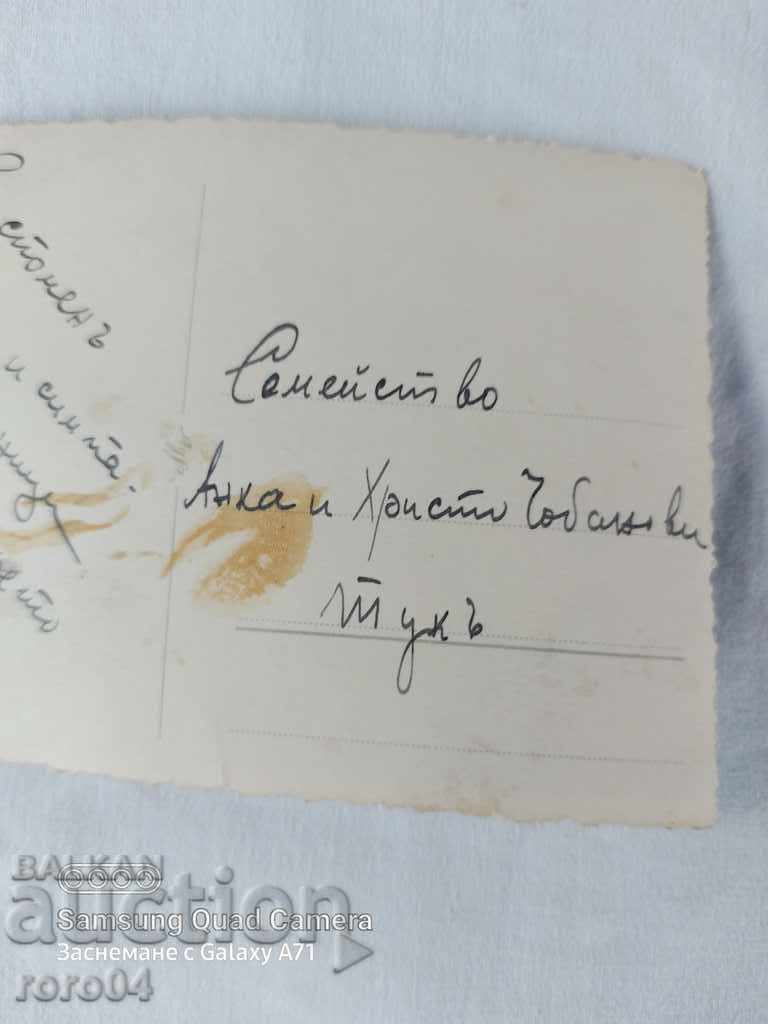 спомен
и симпа-
Семейство
Анка и Христо Чобанови
Тукъ
BALKAN
auction
Samsung Quad Camera
Заснемане с Galaxy A71
roro04